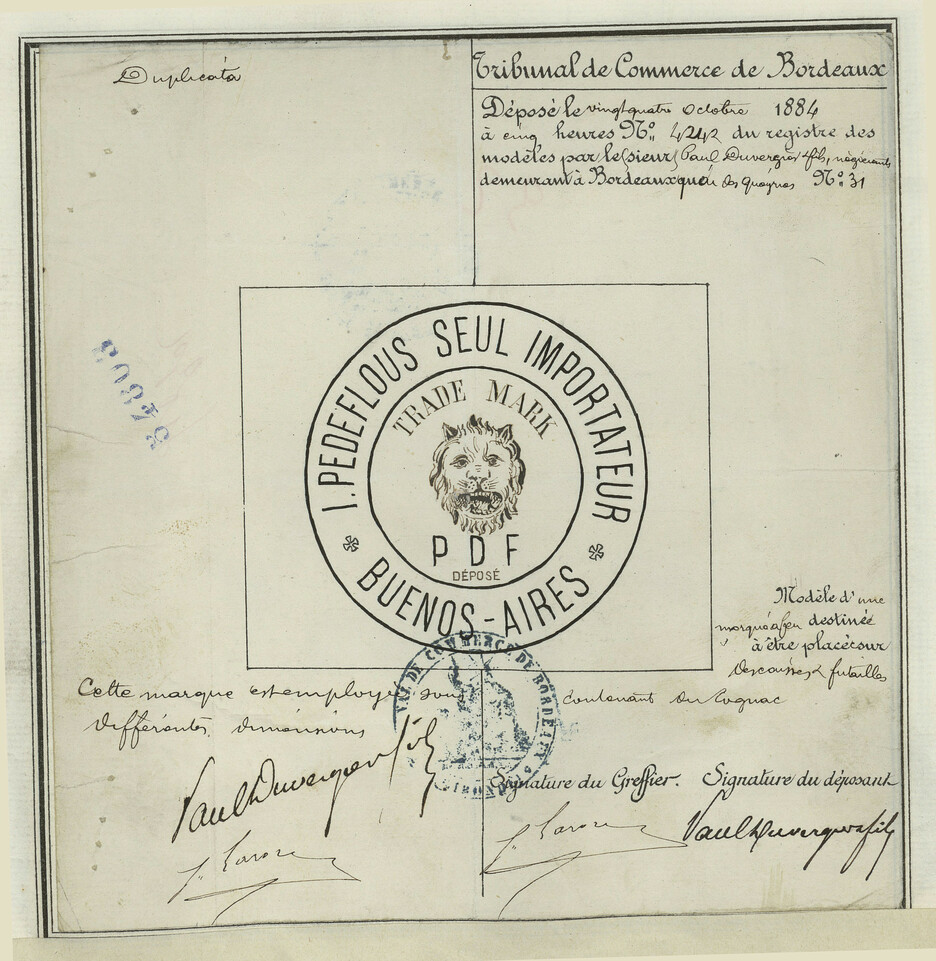 Duplicata
Tribunal de Commerce de Bordeaux
Déposé le vingt quatre Octobre 1884
à cinq heures No. 4242 du registre des
modèles par le (sieur) Paul Duvergier & fils, négociants
demeurant à Bordeaux quai des No. 31
I. PEDEFLOUS SEUL IMPORTATEUR
TRADE MARK
P D F
DÉPOSÉ
BUENOS-AIRES
Modèle d'une
marque à feu destinée
à être placée sur
des caisses & futailles
contenant du Cognac
Cette marque est employée sous
différentes dimensions
DE COMMERCE DE BORDEAUX
Paul Duvergier fils
Signature du Greffier. Signature du déposant
Paul Duvergier & fils